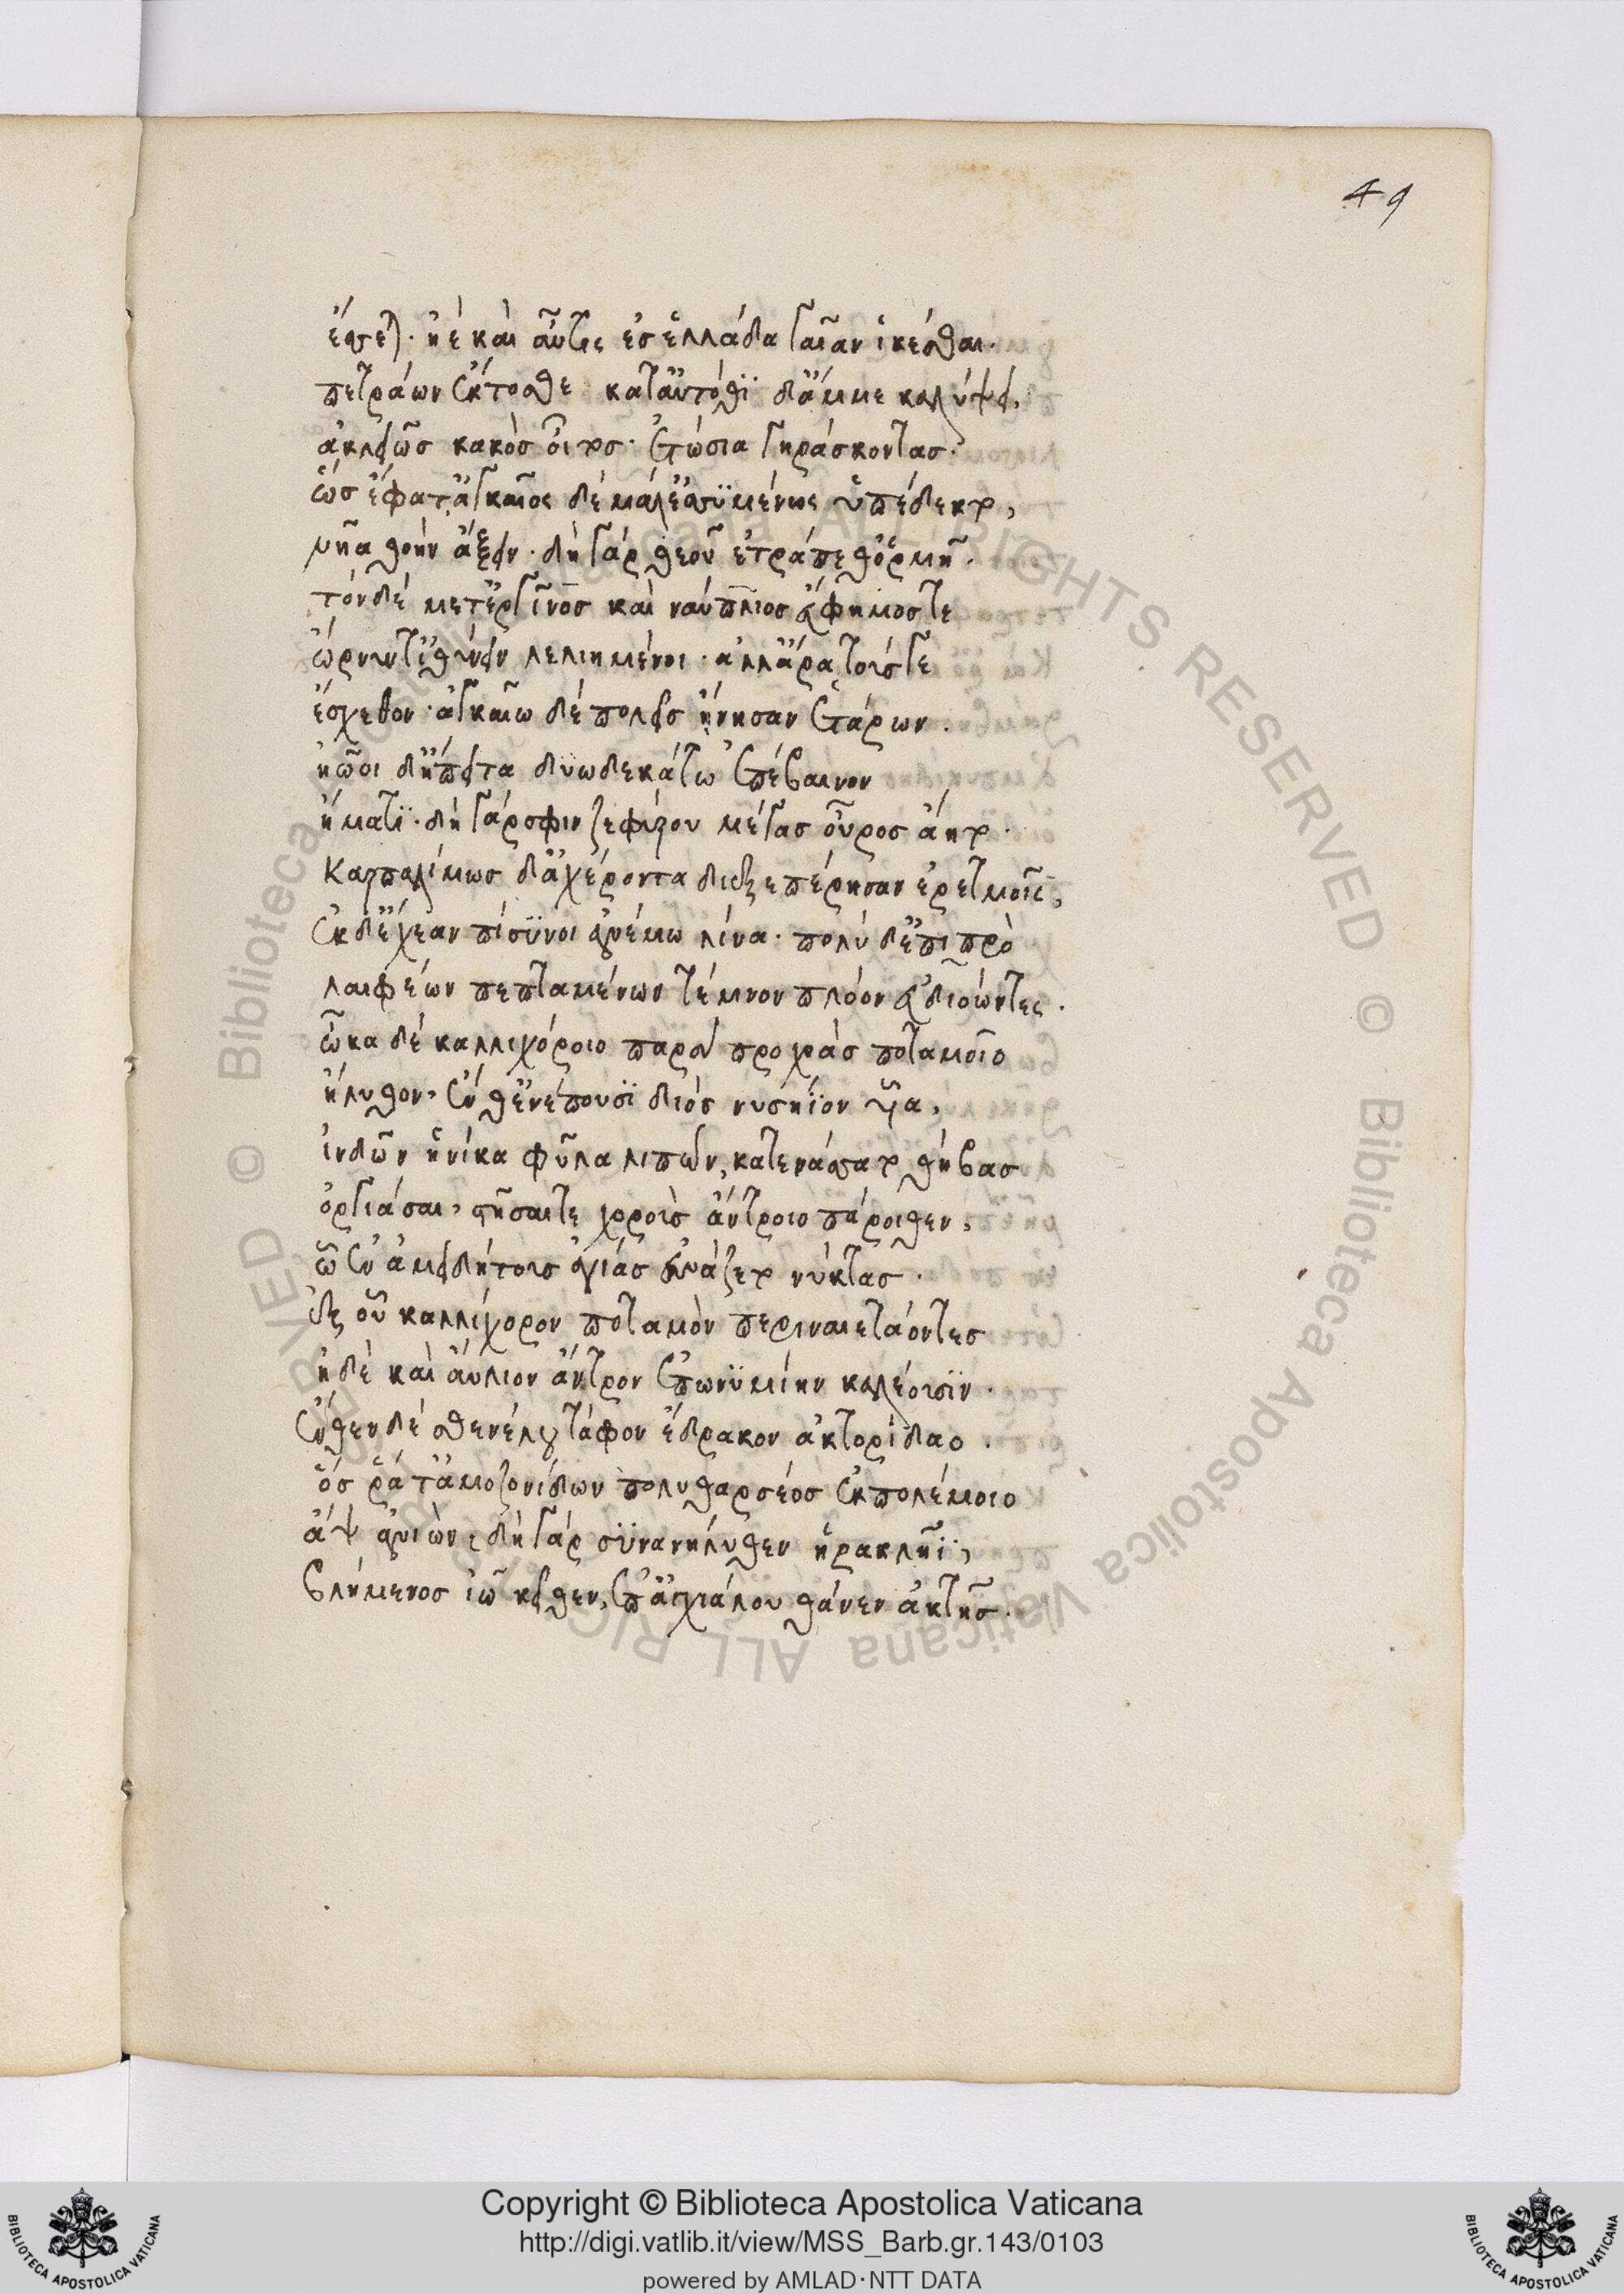 49
ἕψεται· ἠὲ καὶ αὖτις ἐσ ἑλλάδα γαῖαν ἱκέσθαι·
πετράων ἔκτοσθε κατ' αὐτόθϊ δ' ἄμμε καλύψει,
ἀκλειῶσ κακὸσ οἶτοσ· ἐτώσια γηράσκοντασ·
ὣσ ἔφατ' ἀγκαῖος δὲ μάλ' ἐσσϋμένως ὑπέδεκτο,
νῆα θοὴν ἄξειν· δὴ γὰρ θεοῦ ἐτράπεθ' ὁρμῆ·
τὸν δὲ μέτ' ἐργῖνοσ καὶ ναύπλιοσ εὔφημοσ τε
ὤρνυντ' ἰθύνειν λελιημένοι· ἀλλ' ἄρα τούσγε
ἔσχεθον· ἀγκαίω δὲ πολεῖσ ἤνησαν ἑτάρων·
ἠῶοι δἤπειτα δυωδεκάτω ἐπέβαινον
ἤματϊ· δὴ γάρ σφιν ζεφύρου μέγασ οὖροσ ἄητο·
καρπαλίμωσ δ' ἀχέροντα διεξεπέρησαν ἐρετμοῖς,
ἐκ δ' ἔχεαν πίσϋνοι ἀνέμω λίνα· πολὺ δ' ἐπιπρὸ
λαιφέων πεπταμένων τέμνον πλόον εὐδιόωντες·
ὦκα δὲ καλλιχόροιο παρὰ προχοὰσ ποταμοῖο
ἤλυθον, ἔνθ' ἐνέπουσϊ διὸσ νυσήϊον υἷα,
ἰνδῶν ἡνίκα φῦλα λιπὼν, κατενάσσατο θήβασ
ὀργιάσαι, στῆσαί τε χοροὺσ ἄντροιο πάροιθεν,
ὧ ἐν ἀμειδήτουσ ἁγίασ εὐνάζετο νύκτασ·
ἐξ οὗ καλλίχορον ποταμὸν περιναιετάοντεσ
ἠδὲ καὶ αὔλιον ἄντρον ἐπωνϋμίην καλέουσϊν·
ἔνθεν δὲ σθενέλου τάφον ἔδρακον ἀκτορίδαο·
ὅσ ῥά τ' ἀμαζονίδων πολυθαρσέοσ ἐκ πολέμοιο
ἂψ ἀνιὼν, δὴ γὰρ σϋνανήλυθεν ἡρακλῆϊ,
βλήμενοσ ἰῶ κεῖθεν, ἐπ' αἰγιάλου θάνεν ἀκτῆσ·
Copyright © Biblioteca Apostolica Vaticana
http://digi.vatlib.it/view/MSS_Barb.gr.143/0103
powered by AMLAD·NTT DATA